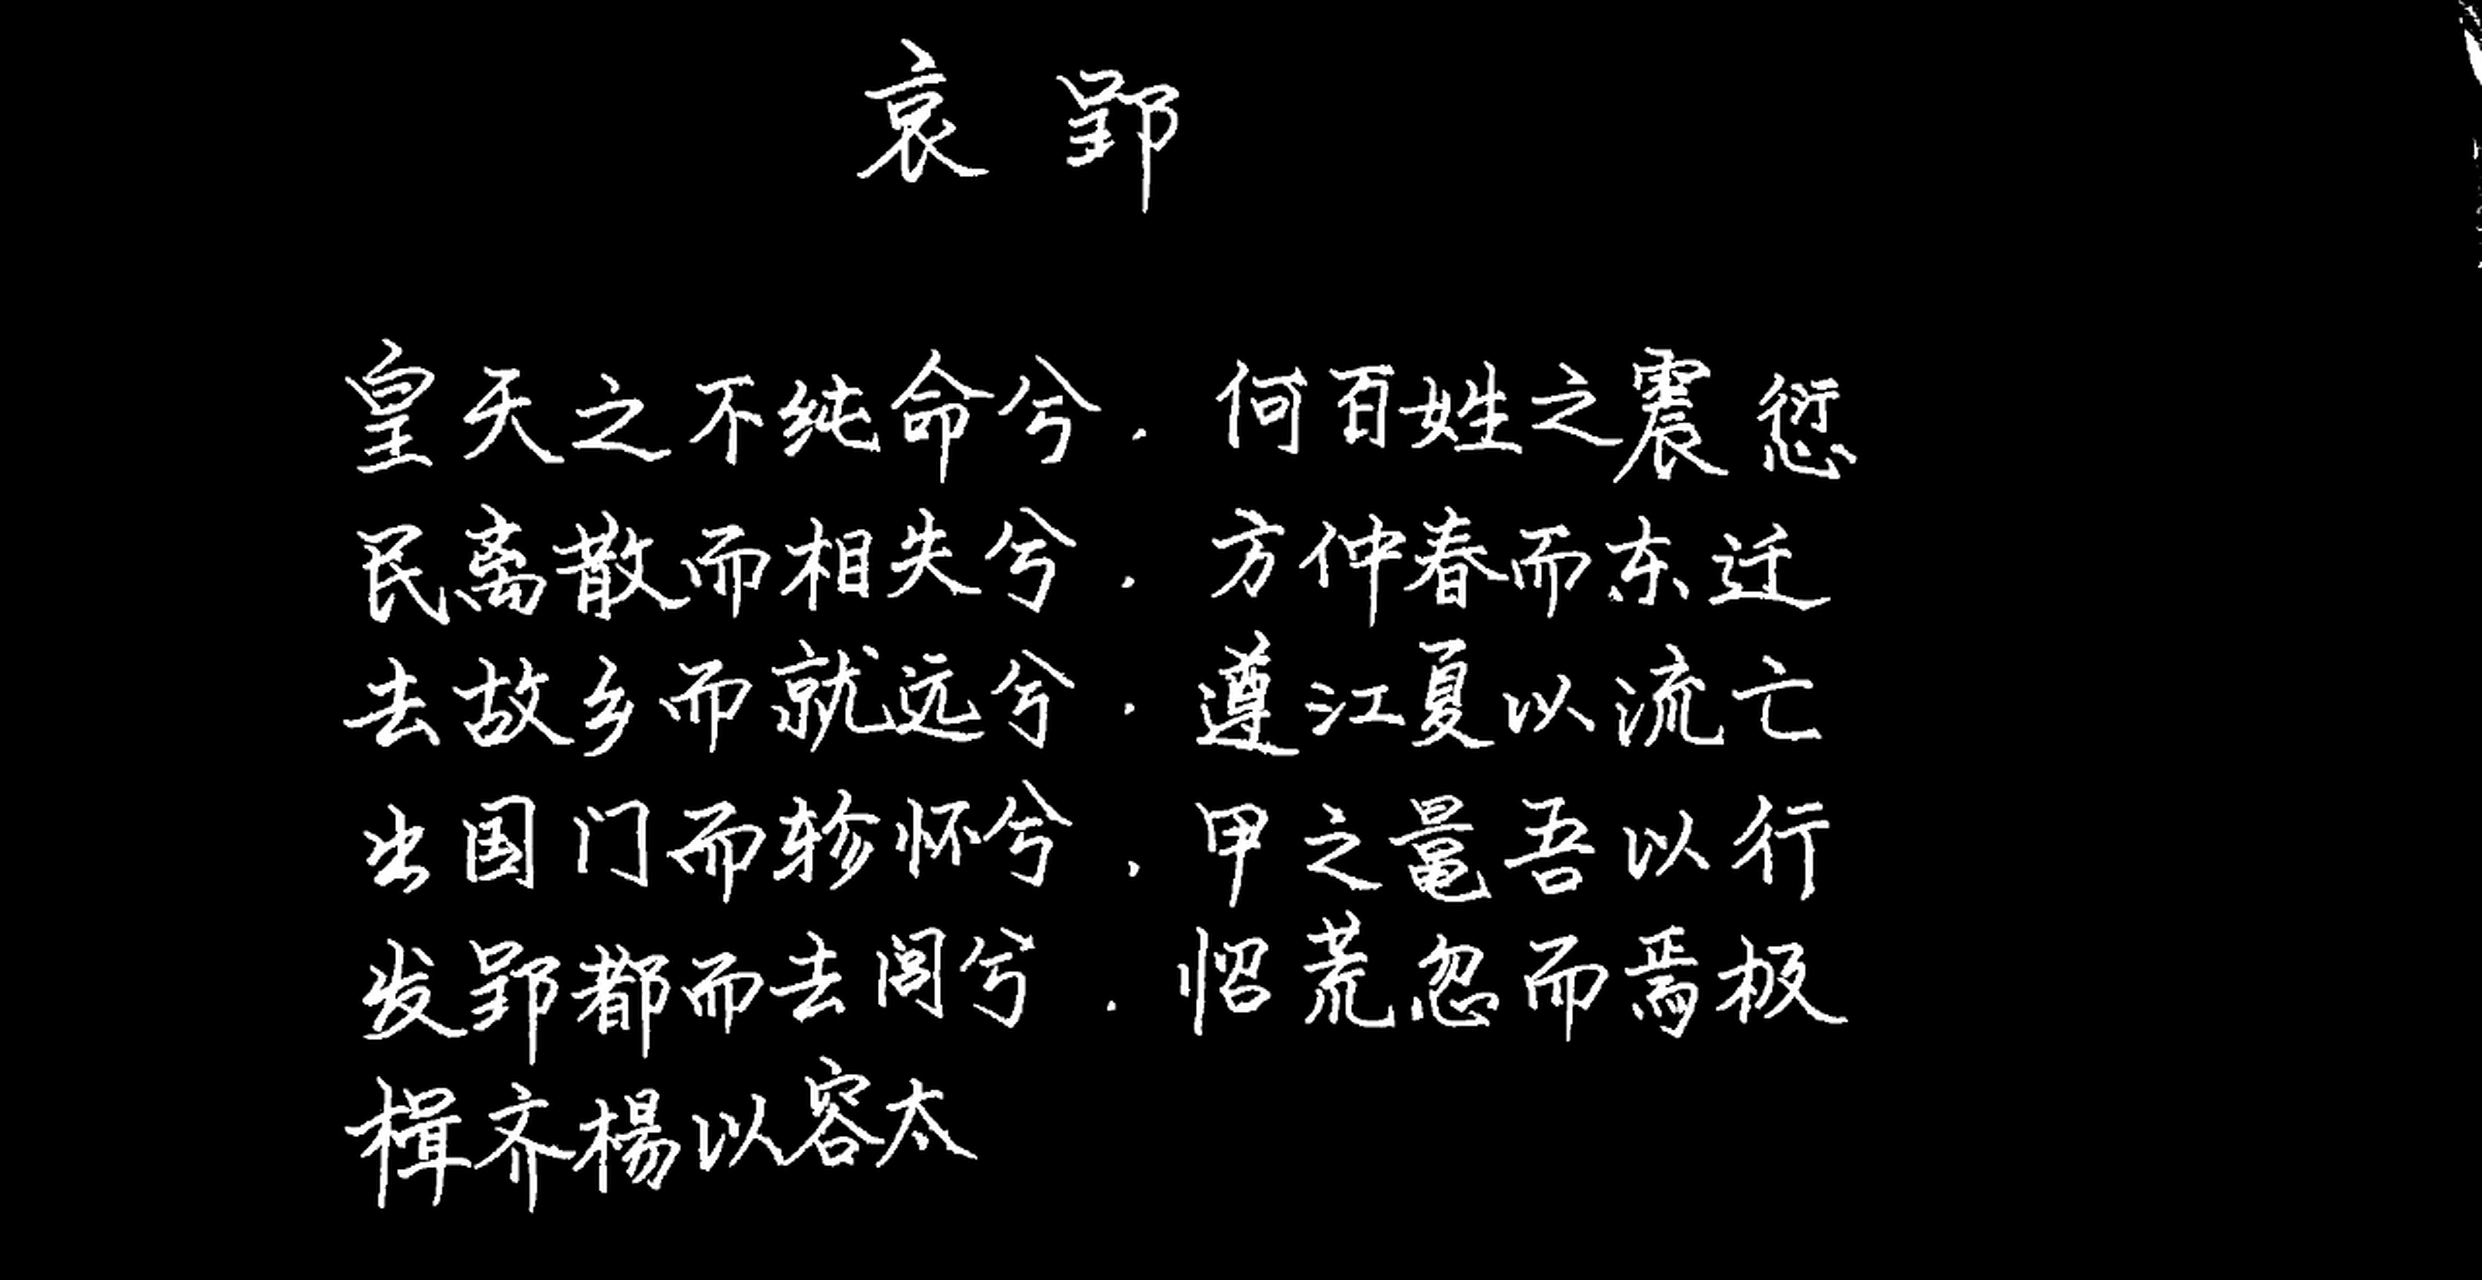 哀郢
皇天之不纯命兮.何百姓之震愆
民离散而相失兮.方仲春而东迁
去故乡而就远兮.遵江夏以流亡
出国门而轸怀兮.甲之鼂吾以行
发郢都而去闾兮.怊荒忽而焉极
楫齐楊以容太